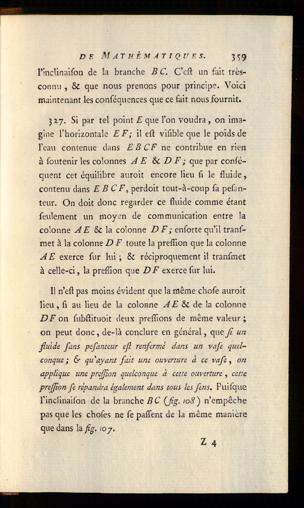 DE MATHÉMATIQUES. 359
l'inclinaison de la branche BC. C'est un fait très-
connu, & que nous prenons pour principe. Voici
maintenant les conséquences que ce fait nous fournit.
327. Si par tel point E que l'on voudra, on ima-
gine l'horizontale EF; il est visible que le poids de
l'eau contenue dans EBCF ne contribue en rien
à soutenir les colonnes AE & DF; que par consé-
quent cet équilibre auroit encore lieu si le fluide,
contenu dans EBCF, perdoit tout-à-coup sa pesan-
teur. On doit donc regarder ce fluide comme étant
seulement un moyen de communication entre la
colonne AE & la colonne DF; ensorte qu'il trans-
met à la colonne DF toute la pression que la colonne
AE exerce sur lui; & réciproquement il transmet
à celle-ci, la pression que DF exerce sur lui.
Il n'est pas moins évident que la même chose auroit
lieu, si au lieu de la colonne AE & de la colonne
DF on substituoit deux pressions de même valeur;
on peut donc, de-là conclure en général, que si un
fluide sans pesanteur est renfermé dans un vase quel-
conque; & qu'ayant fait une ouverture à ce vase, on
applique une pression quelconque à cette ouverture, cette
pression se répandra également dans tous les sens. Puisque
l'inclinaison de la branche BC (fig. 108) n'empêche
pas que les choses ne se passent de la même manière
que dans la fig. 107.
Z 4